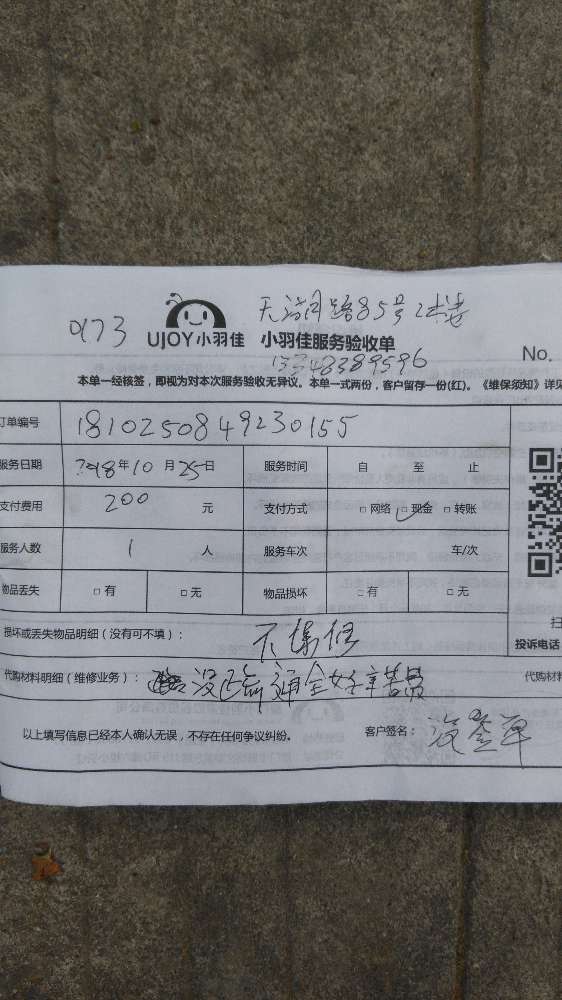 973
UJOY小羽佳 小羽佳服务验收单
路85号
13348389596
No.
本单一经核签，即视为对本次服务验收无异议。本单一式两份，客户留存一份(红)。《维保须知》详见
订单编号 1810250849230155
服务日期 2018年10月25日 服务时间 自 至 止
支付费用 200 元 支付方式 □网络 □现金 □转账
服务人数 1 人 服务车次 车/次
物品丢失 □有 □无 物品损坏 □有 □无
损坏或丢失物品明细（没有可不填）： 不保修
投诉电话
代购材料明细（维修业务）： 没 通
代购材料
以上填写信息已经本人确认无误，不存在任何争议纠纷。 客户签名： 没签单